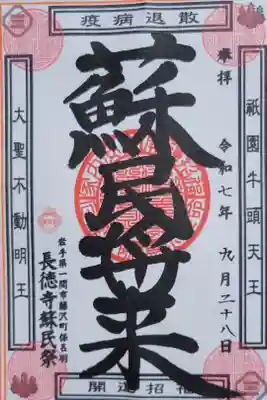 疫病退散
祇園牛頭天王
奉拝
令和七年 九月二十八日
蘇民将来
岩手県一関市藤沢町保呂羽
長徳寺蘇民祭
大聖不動明王
開運招福